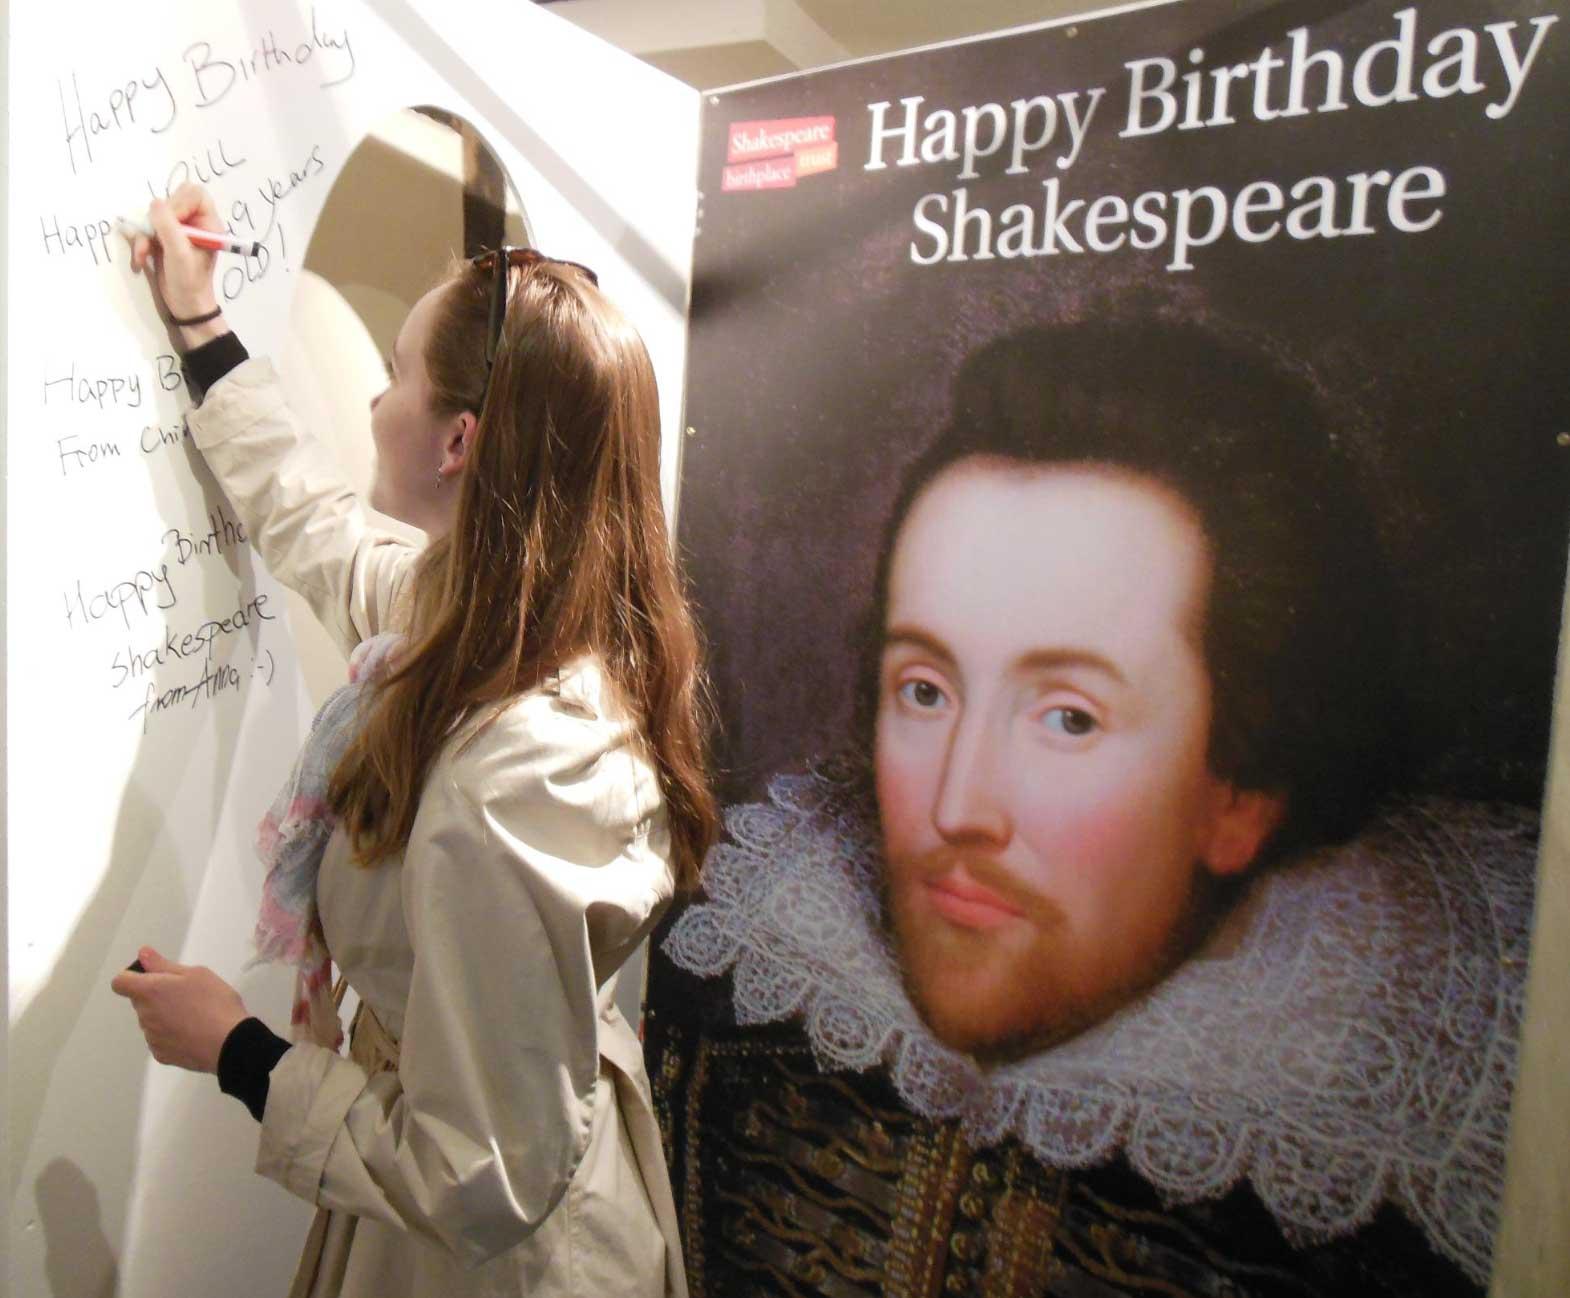 Happy Birthday
Will
Happ
49 years
old!
Happy B
From Chi
Happy Birthd
Shakespeare
from Anna :-)
Shakespeare
birthplace trust
Happy Birthday
Shakespeare